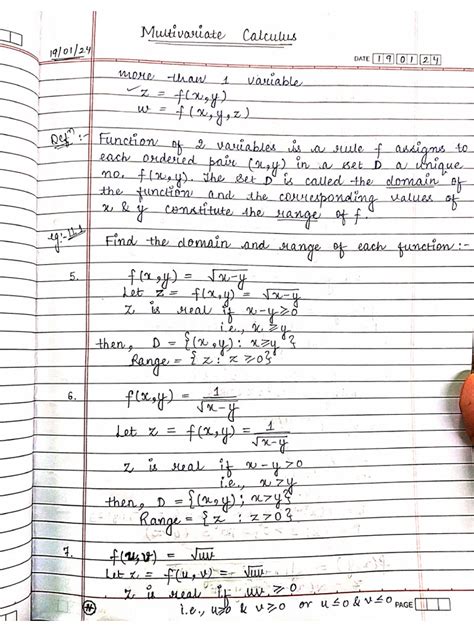 Multivariate Calculus
19/01/24
DATE 1 9 0 1 2 4
more than 1 variable
z = f(x,y)
w = f(x,y,z)
Defⁿ :- Function of 2 variables is a rule f assigns to
each ordered pair (x,y) in a set D a unique
no. f(x,y). The set D is called the domain of
the function and the corresponding values of
x & y constitute the range of f.
eg:- 11.1 Find the domain and range of each function :-
5. f(x,y) = √x-y
Let z = f(x,y) = √x-y
z is real if x-y≥0
i.e., x≥y
then, D = {(x,y) : x≥y}
Range = {z : z≥0}
6. f(x,y) = 1/√x-y
Let z = f(x,y) = 1/√x-y
z is real if x-y>0
i.e., x>y
then, D = {(x,y) ; x>y}
Range = {z : z>0}
7. f(u,v) = √uv
Let z = f(u,v) = √uv
z is real if uv ≥ 0
i.e., u≥0 & v≥0 or u≤0 & v≤0
PAGE